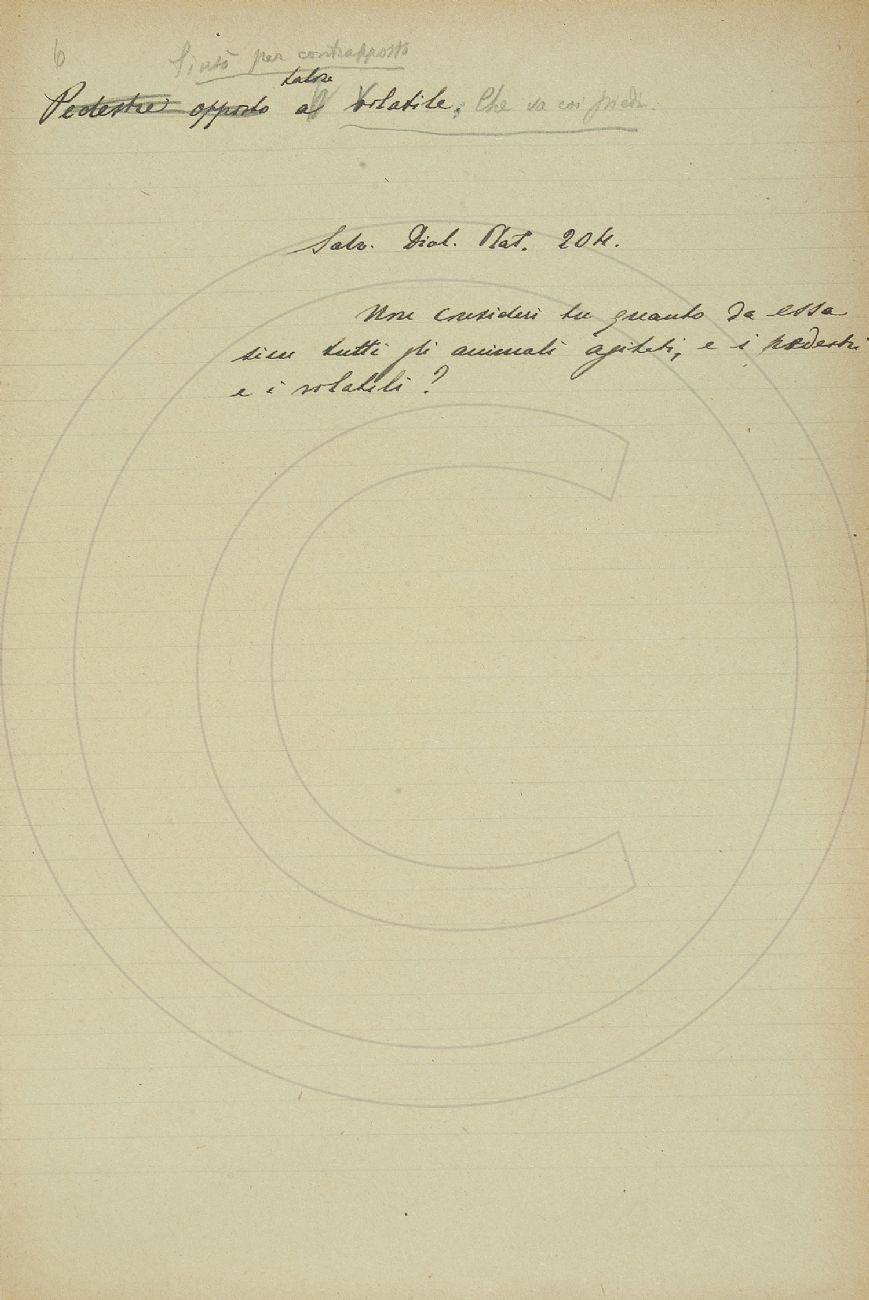 6
per contrapposto
talora
Pedestre opposto al Volatile; Che va coi piedi.
Salv. Dial. Plat. 204.
Non consideri tu quanto da essa
sieno tutti gli animali agitati, e i pedestri
e i volatili?